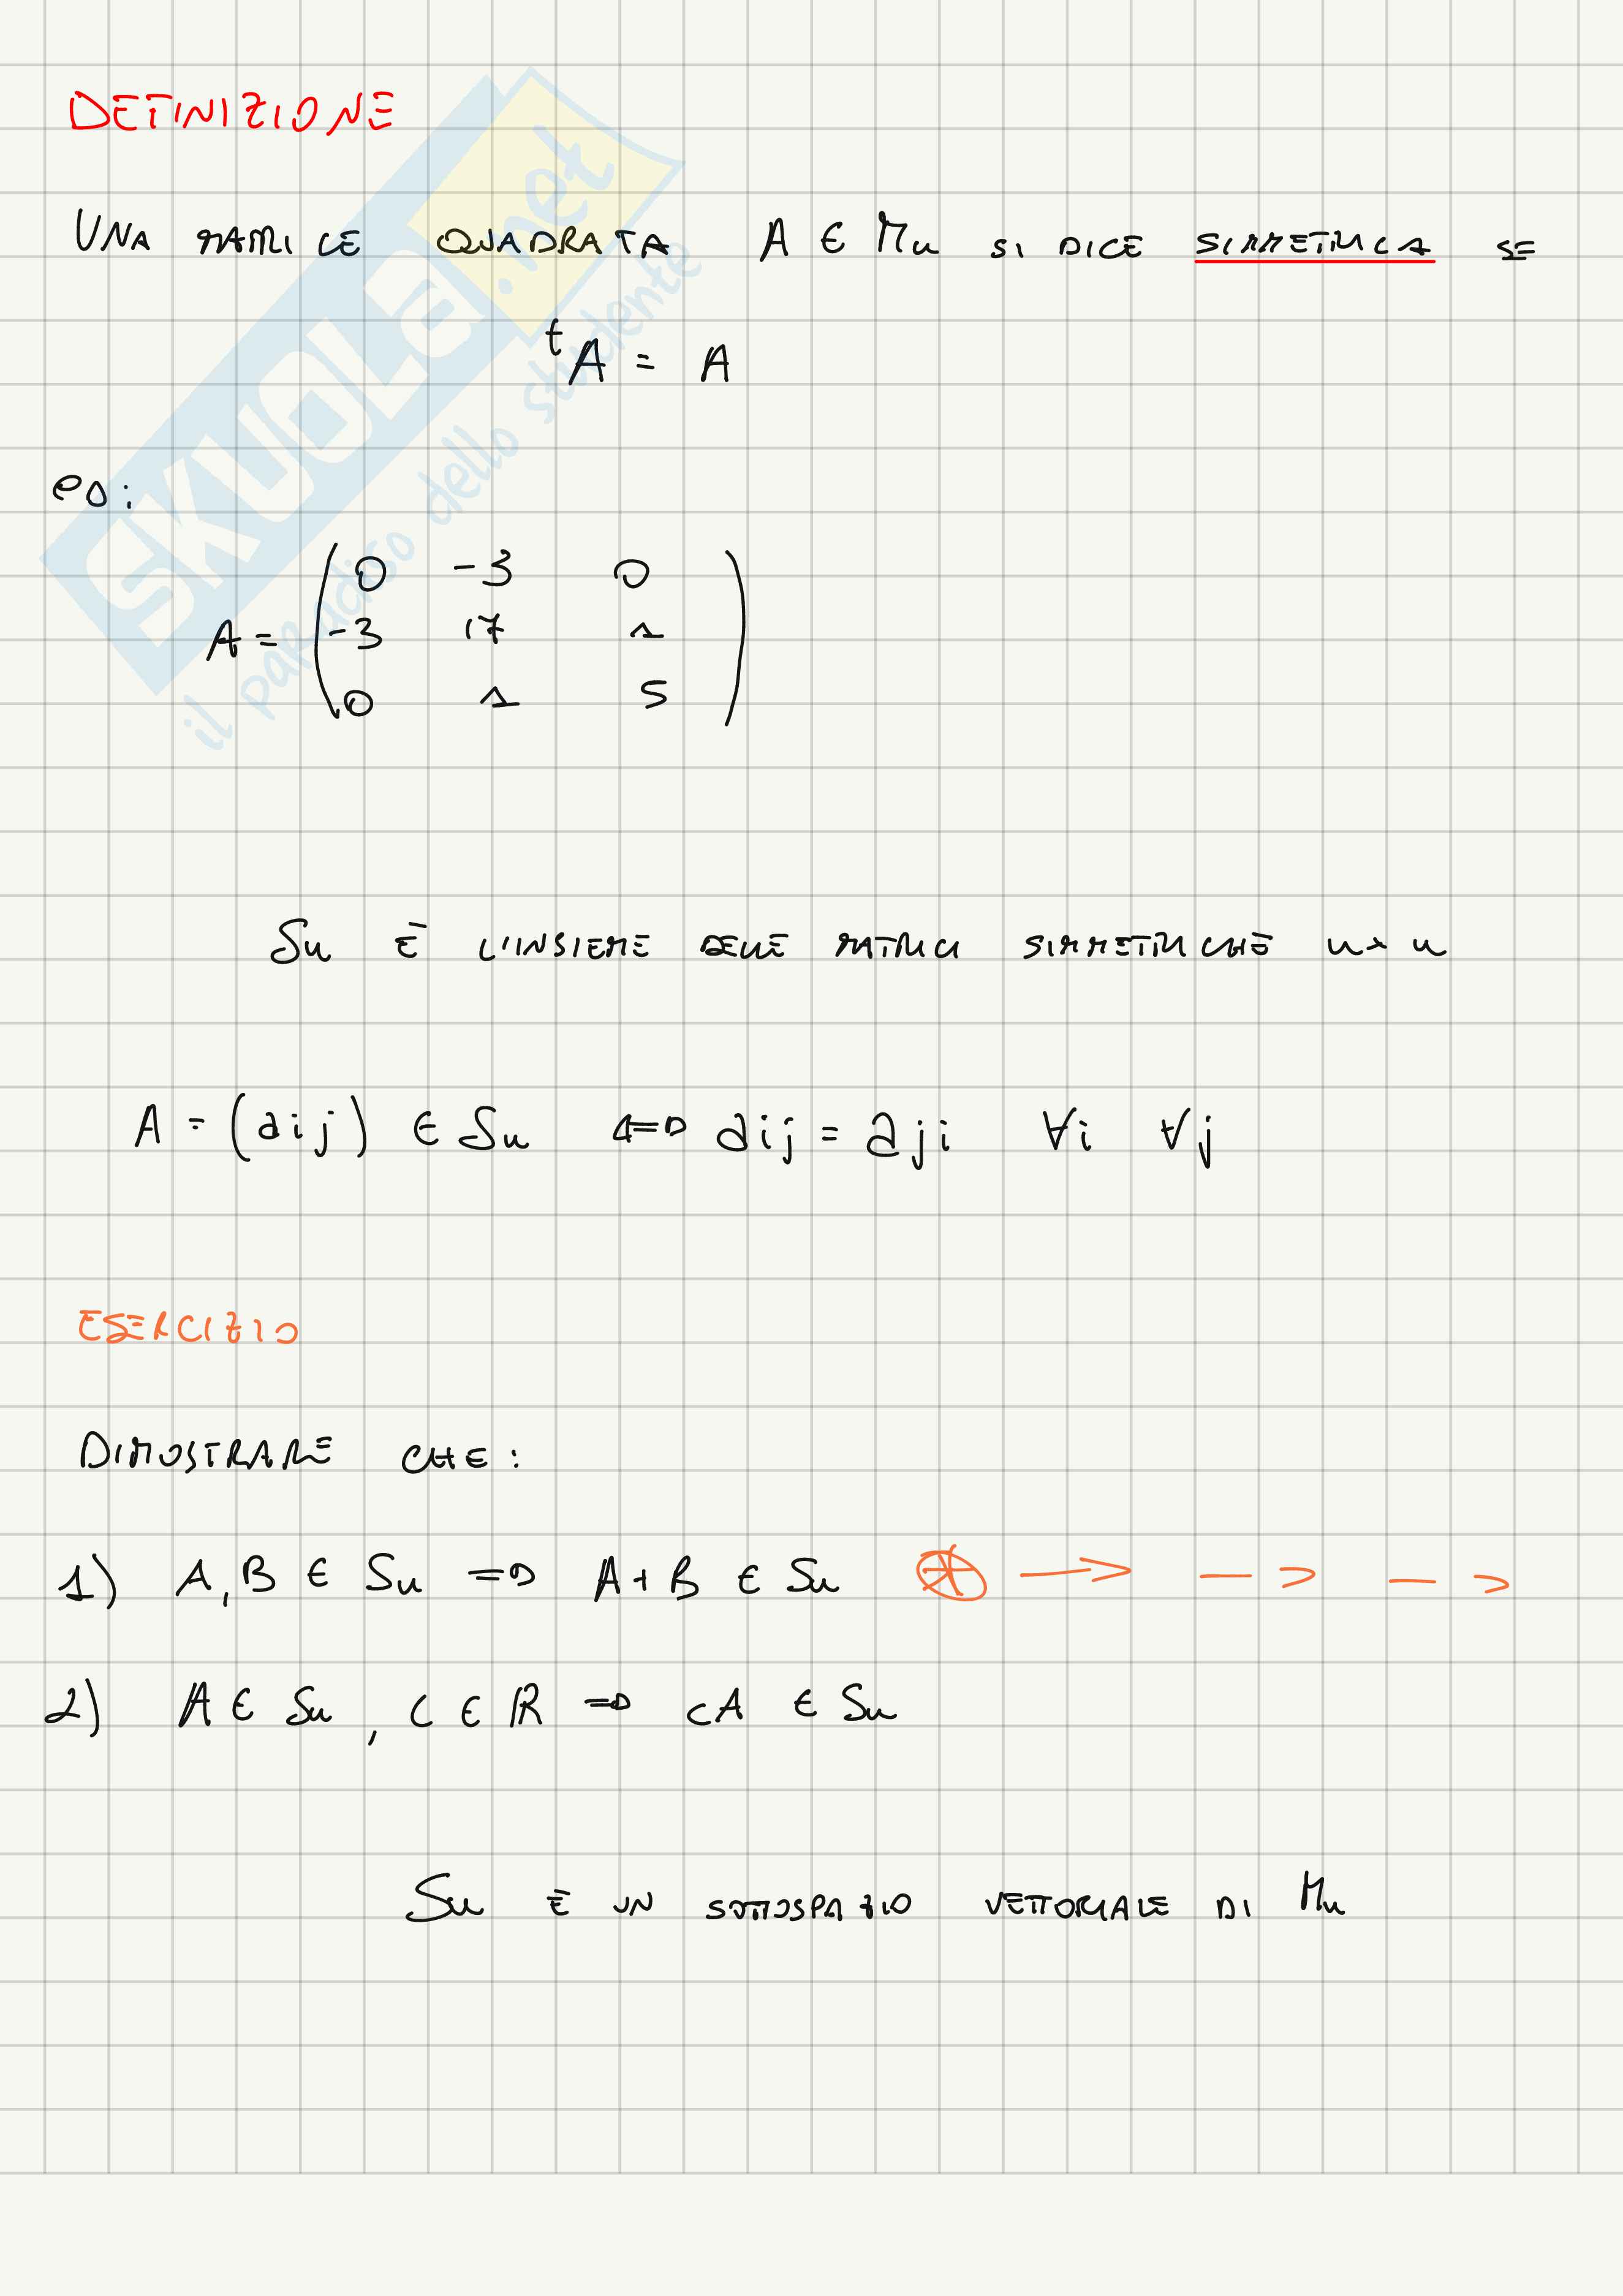 DEFINIZIONE
UNA MATRICE QUADRATA A ∈ Mn SI DICE SIMMETRICA SE
tA = A
es:
A = ( 0 -3 0
-3 17 1
0 1 5 )
Sn È L'INSIEME DELLE MATRICI SIMMETRICHE n×n
A = (aij) ∈ Sn ⇔ aij = aji ∀i ∀j
ESERCIZIO
DIMOSTRARE CHE:
1) A, B ∈ Sn ⇒ A+B ∈ Sn * → → →
2) A ∈ Sn, c ∈ ℝ ⇒ cA ∈ Sn
Sn È UN SOTTOSPAZIO VETTORIALE DI Mn
SKUOLa.net
il paradiso dello studente